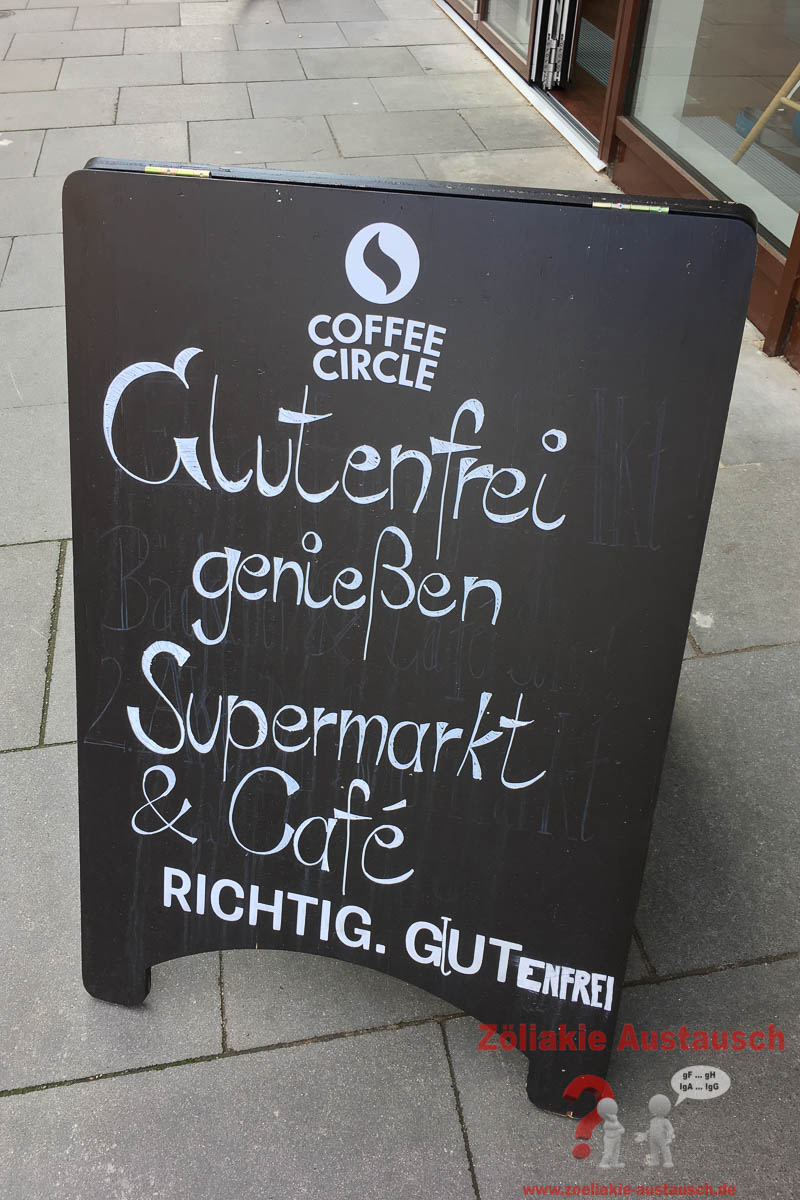 COFFEE
CIRCLE
Glutenfrei
genießen
Supermarkt
& Café
RICHTIG. GlUTENFREI
Zöliakie Austausch
gF ... gH
IgA ... IgG
?
www.zoeliakie-austausch.de